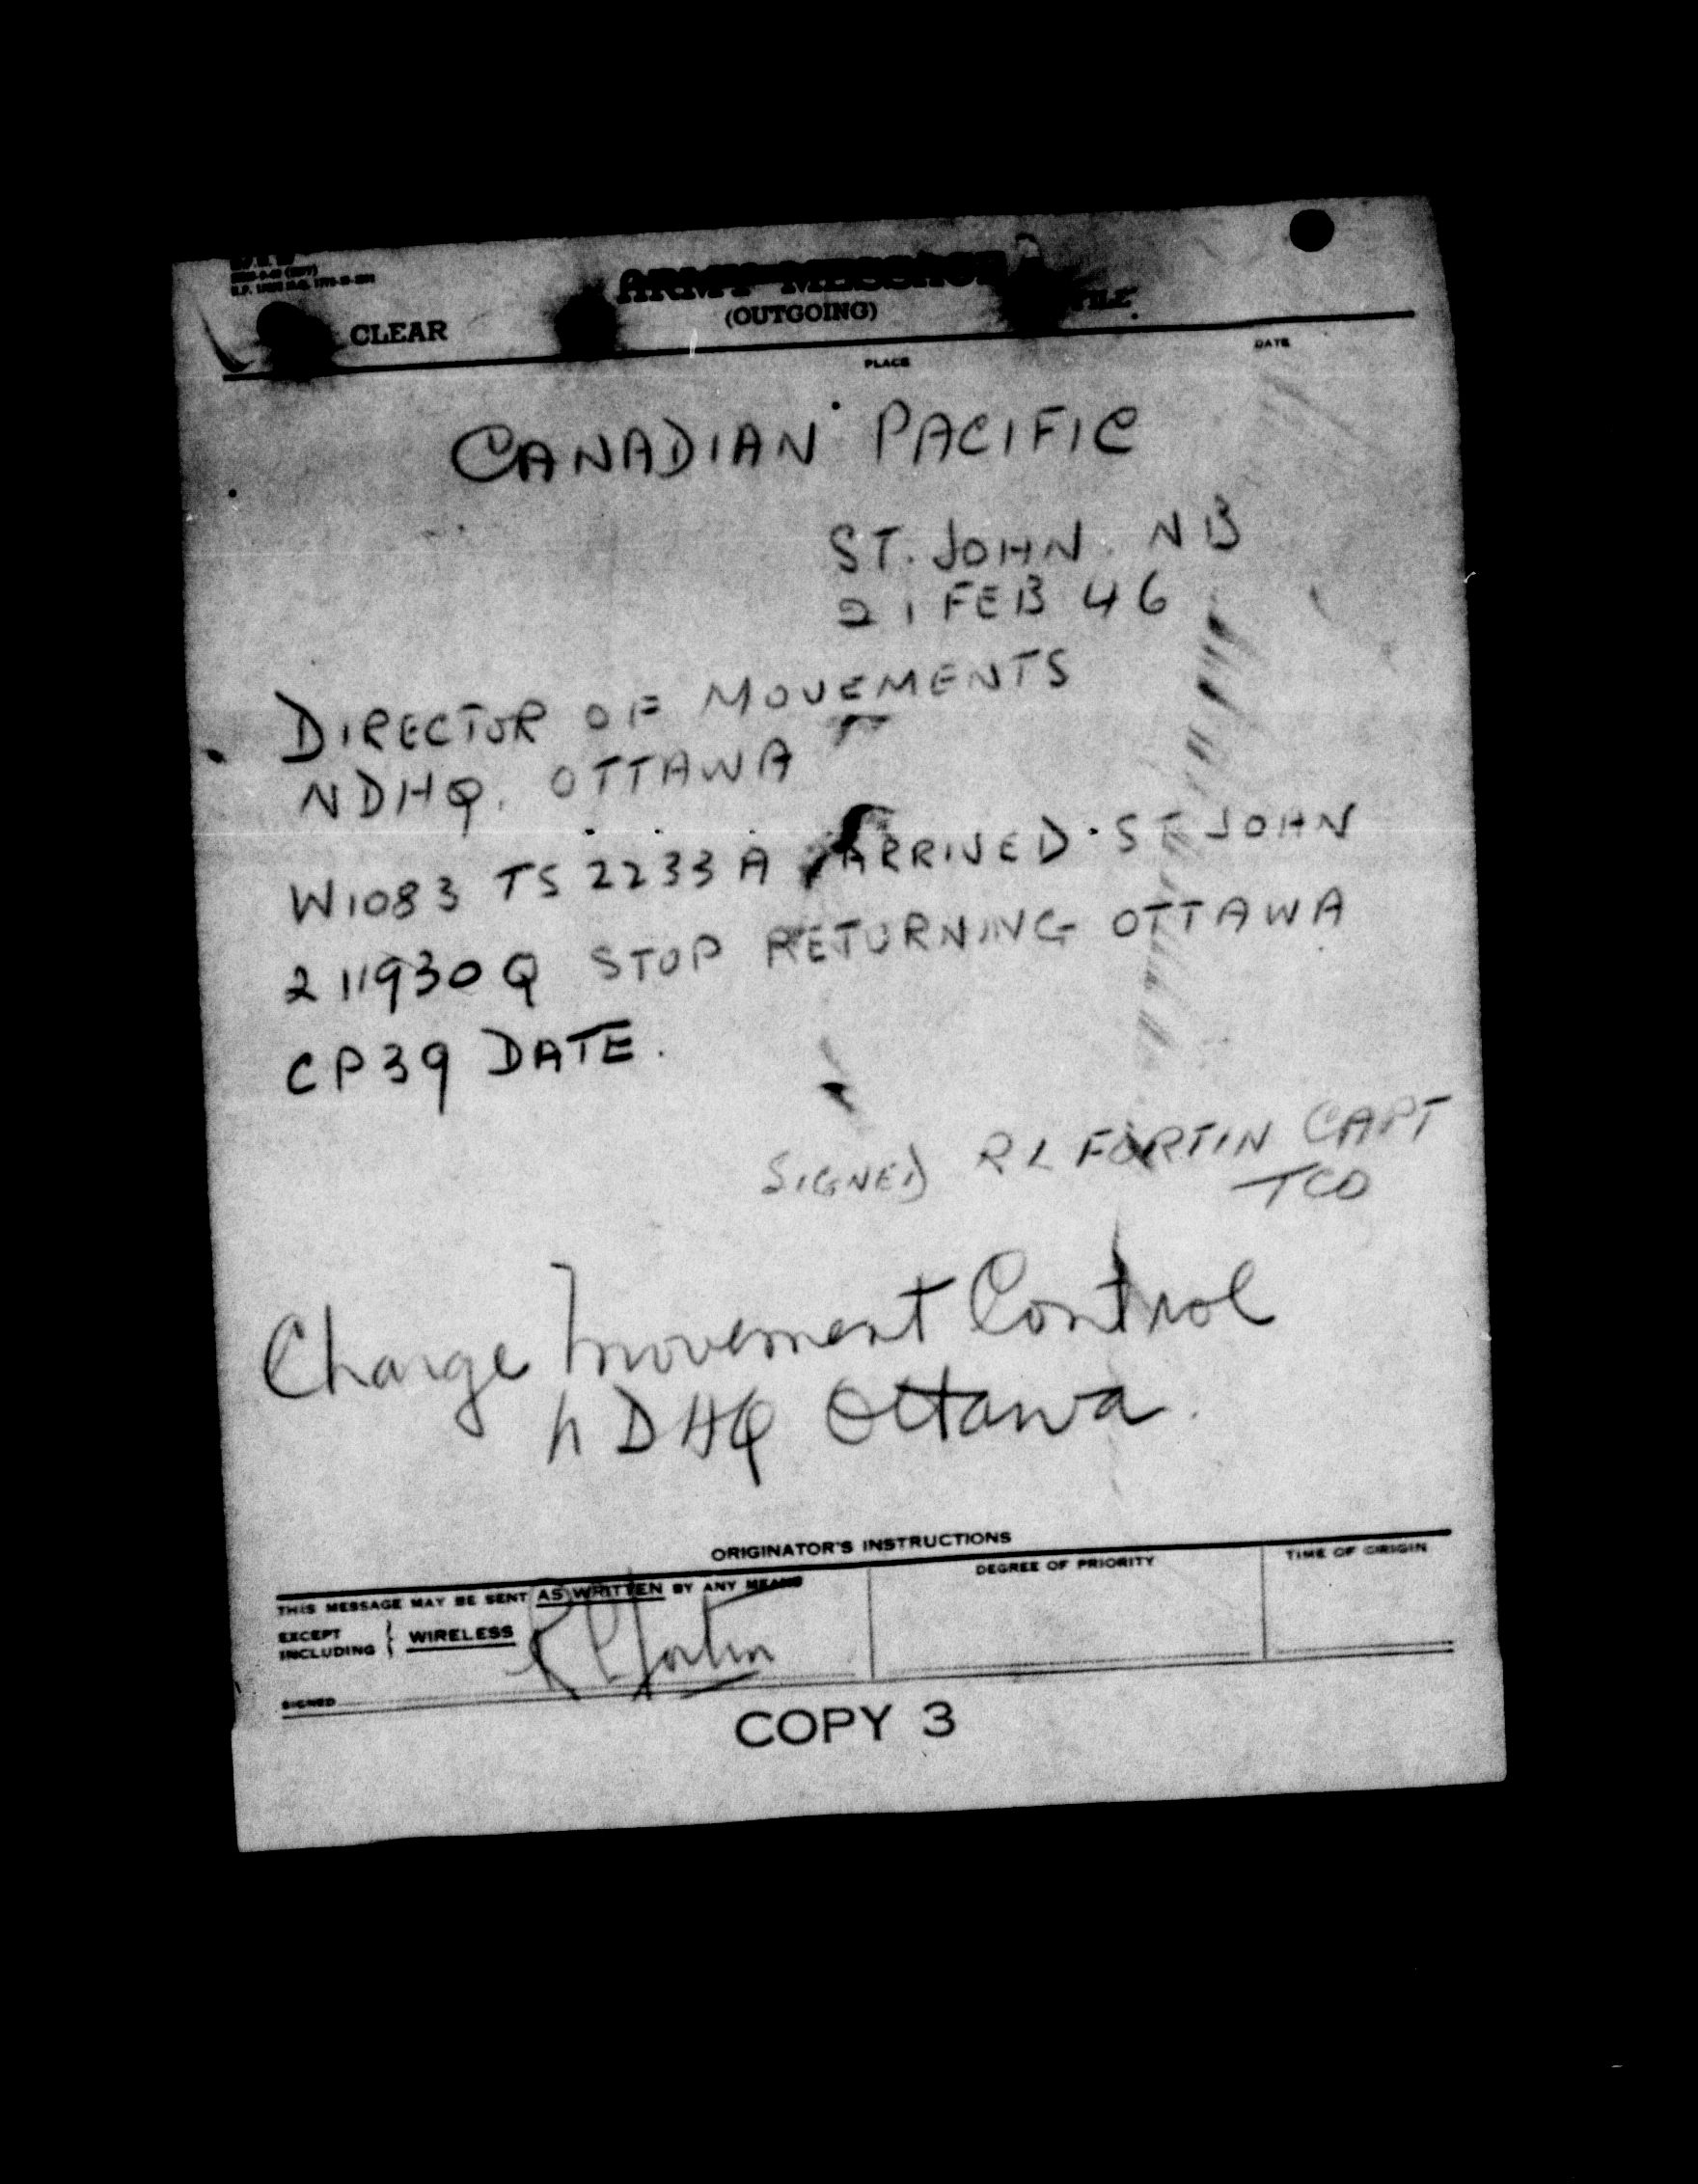 ARMY MESSAGE
(OUTGOING)
CLEAR
PLACE
DATE
CANADIAN PACIFIC
ST. JOHN. NB
21 FEB 46
DIRECTOR OF MOVEMENTS
NDHQ. OTTAWA
W1083 TS 2233A ARRIVED ST JOHN
211930Q STOP RETURNING OTTAWA
CP39 DATE.
SIGNED R L FORTIN CAPT
TCO
Charge Movement Control
NDHQ Ottawa.
ORIGINATOR'S INSTRUCTIONS
THIS MESSAGE MAY BE SENT AS WRITTEN BY ANY MEANS
EXCEPT
INCLUDING } WIRELESS
R L Fortin
SIGNED
DEGREE OF PRIORITY
TIME OF ORIGIN
COPY 3